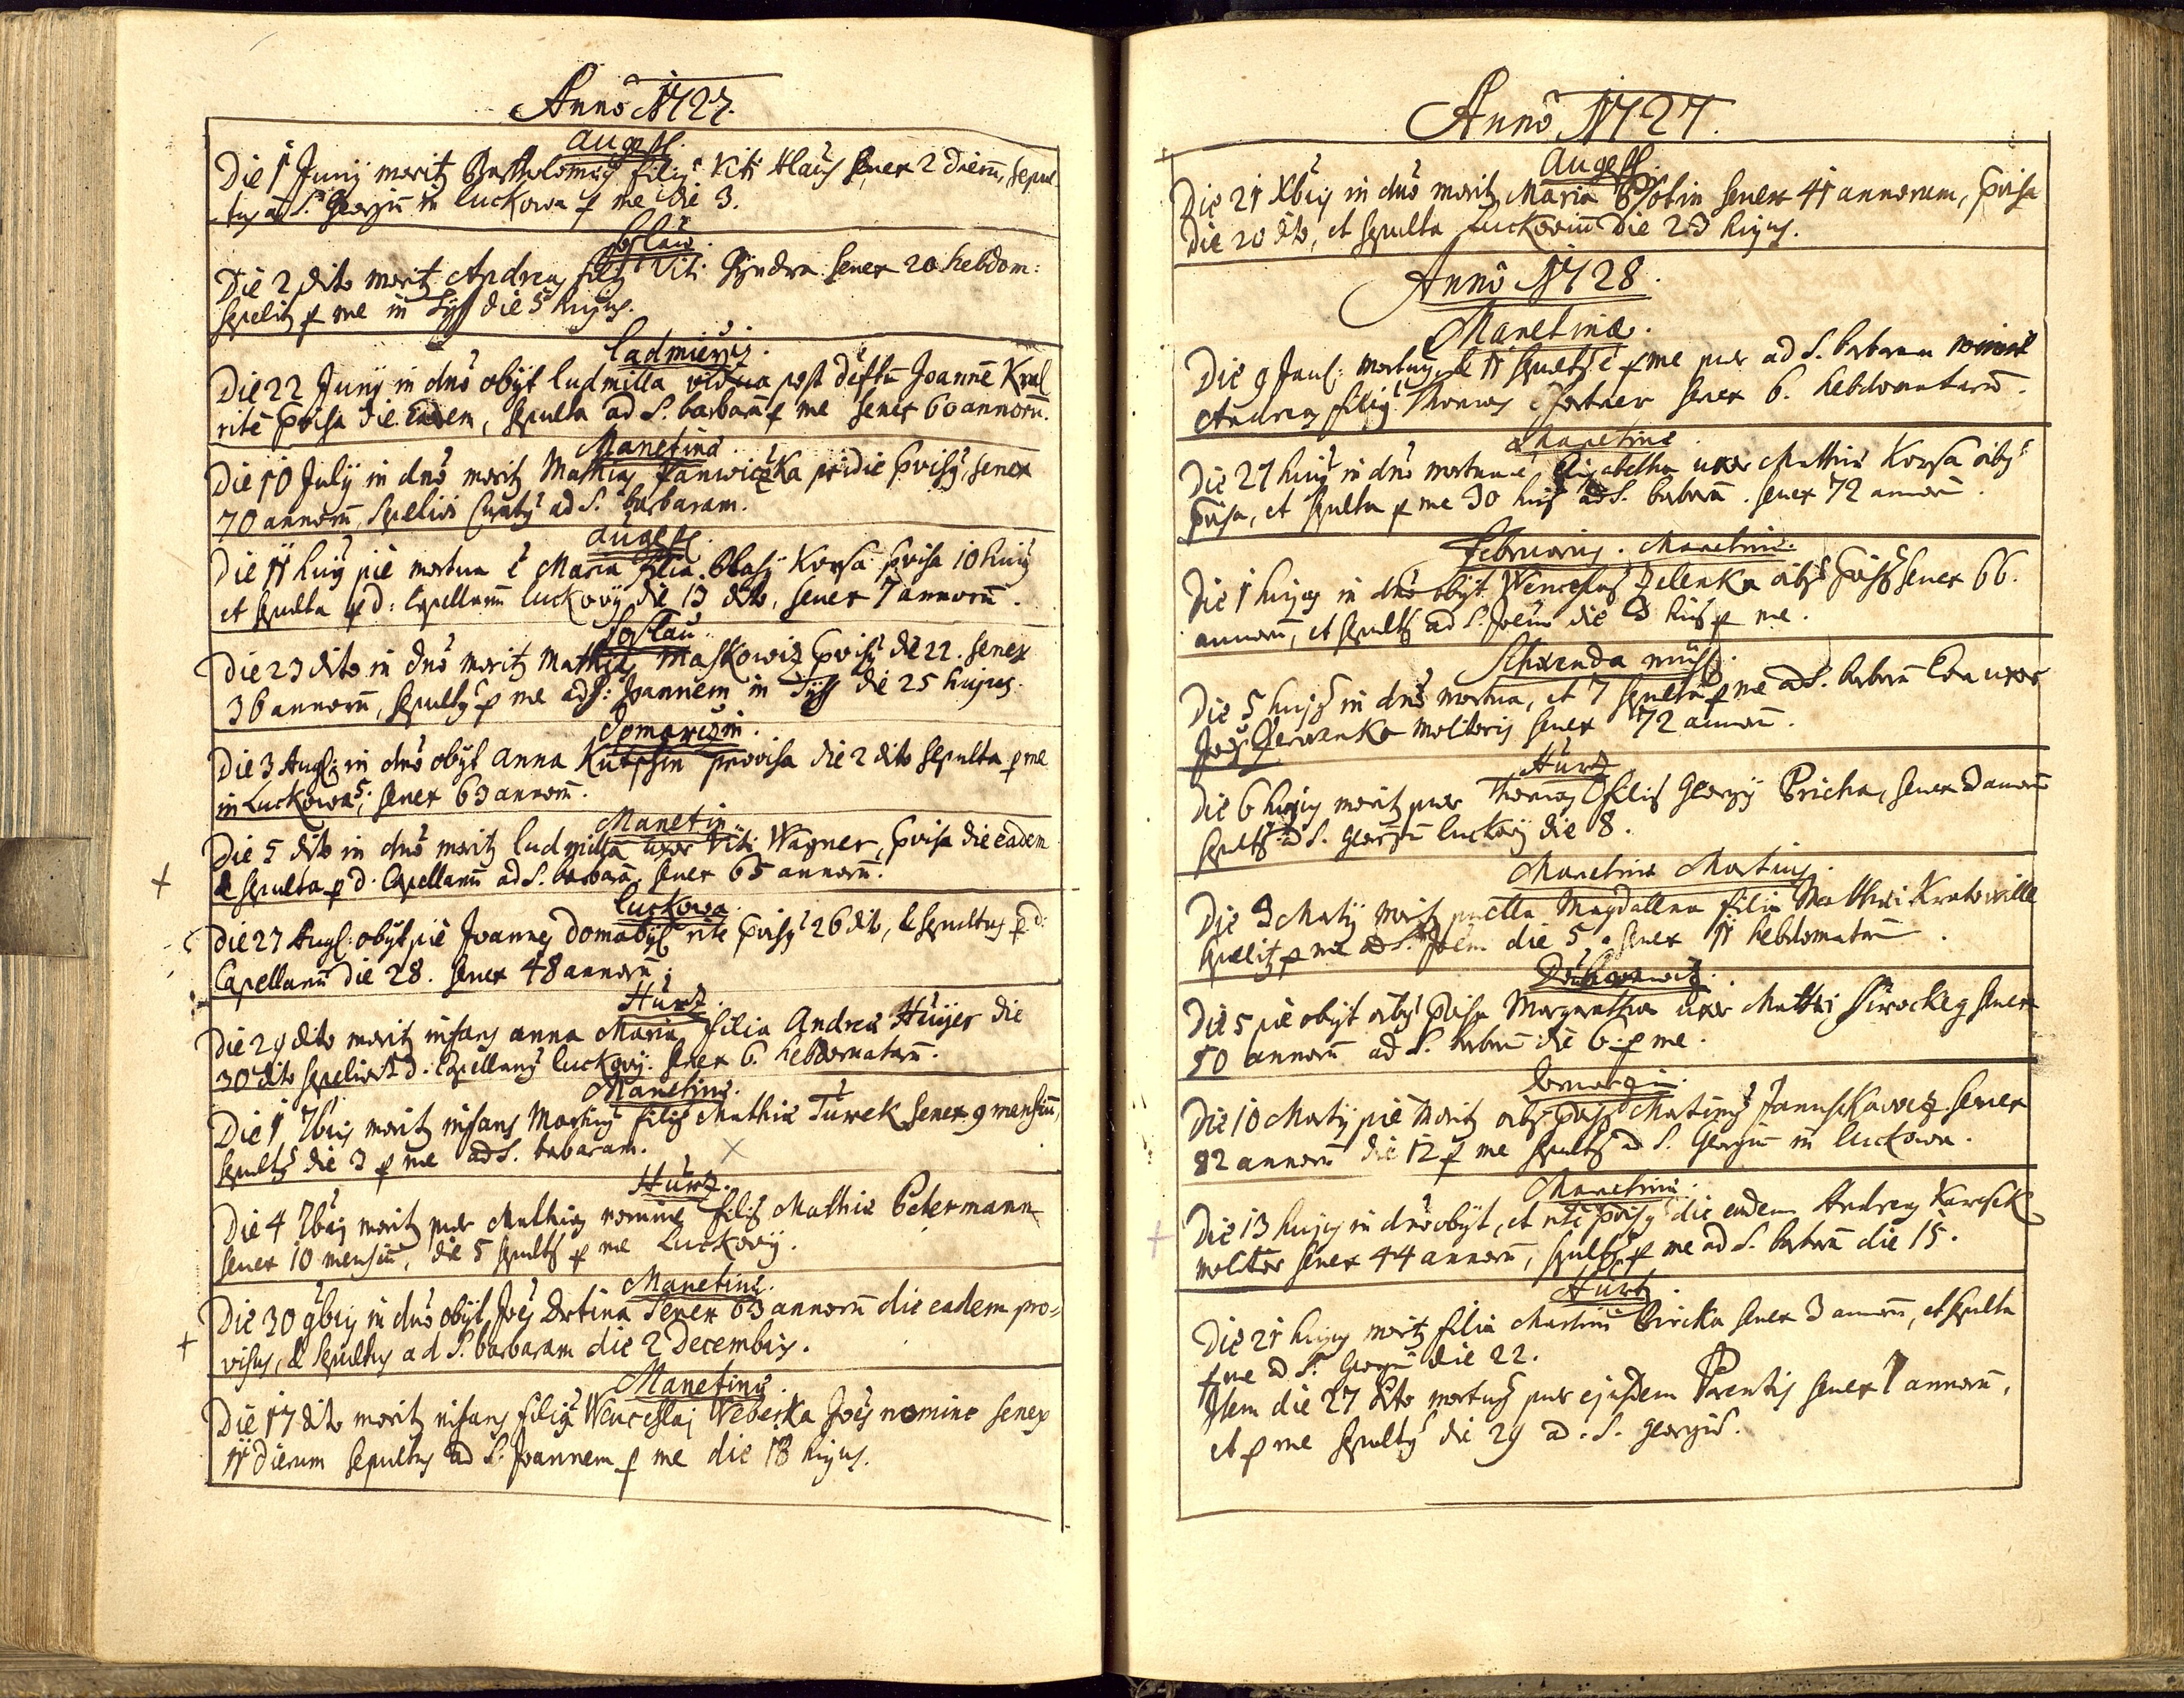 Anno 1727.
Augest.
Die 1 Junÿ morit Bartholomæus filius Viti Klaus senex 2 dierū, sepul-
tus ad S. Georgiū in Luckowa p me die 3.
Loslau.
Die 2 dito morit Andreas fil. Viti Jÿndra senex 20 hebdom:
sepelit p me in Tÿss die 5 hujus.
Ladmieřiz.
Die 22 Junÿ in dnō obÿt Ludmilla vidua post deftū Joannē Kral
ritè p̄visa die eadem, sepulta ad S. barbarā p me senex 60 annorū.
Manetina
Die 10 Julÿ in dnō morit Mathias Janwiczka pridie p̄visus, senex
70 annorū, sepelivi Curatus ad S. barbaram.
Augest.
Die 11 huj. piè mortua ē Maria filia Blasÿ Korsa p̄visa 10 huj.
et sepulta p d: Capellanū Luckovÿ die 13 dito, senex 7 annorū.
Loslau.
Die 23 dito in dnō morit Mathias Maskowiz p̄visus die 22. senex
36 annorū, sepultus p me ad S: Joannem in Tÿss die 25 hujus.
Domarizin.
Die 3 Aug: in dnō obÿt Anna Kutschin provisa die 2 dito sepulta p me
in Luckowa 5; senex 63 annorū.
Manetin.
Die 5 dito in dnō morit Ludmilla uxor Viti Wagner, p̄visa die eadem
& sepulta p d. Capellanū ad S. barbarā, senex 65 annorū.
Luckowa.
Die 27 Aug: obÿt piè Joannes Domabÿl ritè p̄visus 26 dito, & sepultus p d:
Capellanū die 28. senex 48 annorū.
Hurz.
Die 29 dito morit infans Anna Maria filia Andreæ Huÿer die
30 dito sepelivit d. Capellanus Luckovÿ. senex 6. hebdomatarū.
Manetinæ.
Die 1 7bris morit infans Martinus filius Mathiæ Turek senex 9 mensiū,
sepultus die 3 p me ad S. babaram.
Hurz.
Die 4 7bris morit puer Mathias nomine filius Mathiæ Petermann
senex 10 mensiū, die 5 sepultus p me Luckovÿ.
Manetinæ.
Die 30 9bris in dnō obÿt Joēs Drtina senex 63 annorū die eadem pro-
visus, & sepultus ad S. barbaram die 2 Decembris.
Manetinæ.
Die 17 dito morit infans filius Wenceslai Weberka Joēs nomine senex
11 dierum sepultus ad S. Joannem p me die 18 hujus.
Anno 1727.
Augest.
Die 21 Xbris in dnō morit Maria senex 41 annorum, p̄visa
die 20 dito, et sepulta Luckoviū die 23 hujus.
Anno 1728.
Manetinæ.
Die 9 Jan: mortuus, & 11 sepultus ē p me puer ad S. barbaram nomine
Andreas filius Thomas senex 6. hebdomatarū.
Manetinæ.
Die 27 huj. in dnō mortua ē Elisabetha uxor Mathiæ Korsa oībus
p̄visa, et sepulta p me 30 hujus ad S. barbarā. senex 72 annorū.
Februarius. Manetinæ.
Die 1 hujus in dnō obÿt Wenceslaus Zelenka oībus p̄visus senex 66.
annorū, et sepultus ad S. Joēm die 3 hujus p me.
Schwenda mühl.
Die 5 hujus in dnō mortua, et 7 sepulta p me ad S. barbarā Eva uxor
Joīs molitoris senex 72 annorū.
Hurz
Die 6 hujus morit puer Thomas filius Georgÿ Pricha, senex 3 annorū
sepultus ad S. Georgiū Luckovÿ die 8.
Manetinæ Martius.
Die 3 Martÿ morit puella Magdalena filia Mathæi Kratowille
sepelit p me ad S. Joēm die 5. senex 11 hebdomatarū.
Die 5 piè obÿt oībus p̄visa Margaretha uxor Mathæi Sirockeg senex
50 annorū ad S. barbarā die 6. p me.
Domarzin.
Die 10 Martÿ piè morit oībus p̄visus Martinus Januschkowez senex
82 annorū die 12 p me sepultus ad S. Georgiū in Luckowa.
Manetinæ.
Die 13 hujus in dnō obÿt, et ritè p̄visus die eadem Andreas Karesek
molitor senex 44 annorū, sepultus p me ad S. barbarā die 15.
Hurz.
Die 21 hujus morit filia Martini Piricka senex 3 annorū, et sepulta
p me ad S. Georgiū die 22.
Item die 27 dito mortuus puer ejusdem Parentis senex 1 annorū,
et p me sepultus die 29 ad. S. Georgiū.